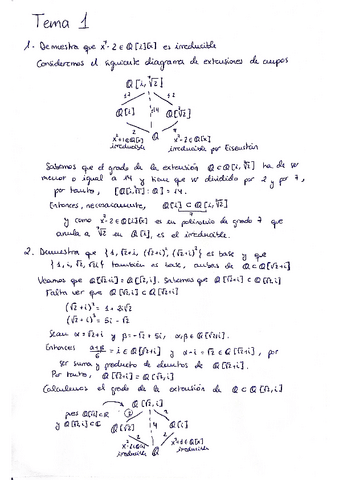 Tema 1
1.- Demuestra que x⁷-2 ∈ Q[i][x] es irreducible
Consideremos el siguiente diagrama de extensiones de cuerpos
Q[i, ⁷√2]
≤7 14 ≤2
Q[i] Q[⁷√2]
2 7
x²+1∈Q[x] Q x⁷-2∈Q[x]
irreducible irreducible por Eisenstein
Sabemos que el grado de la extensión Q ⊂ Q[i, ⁷√2] ha de ser
menor o igual a 14 y tiene que ser dividido por 2 y por 7,
por tanto, [Q[i, ⁷√2] : Q] = 14.
Entonces, necesariamente, Q[i] ⊂ Q[i, ⁷√2]
y como x⁷-2 ∈ Q[i][x] es un polinomio de grado 7 que
anula a ⁷√2 en Q[i], es el irreducible.
2. Demuestra que {1, √2+i, (√2+i)², (√2+i)³} es base y que
{1, i, √2, √2i} también es base, ambas de Q ⊂ Q[√2+i]
Veamos que Q[√2+i] = Q[√2, i]. Sabemos que Q[√2+i] ⊂ Q[√2, i]
Falta ver que Q[√2, i] ⊂ Q[√2+i]
(√2+i)² = 1 + 2i√2
(√2+i)³ = 5i - √2
Sean α = √2+i y β = -√2 + 5i, α, β ∈ Q[√2+i].
Entonces (α+β)/6 = i ∈ Q[√2+i] y α-i = √2 ∈ Q[√2+i], por
ser suma y producto de elementos de Q[√2+i].
Por tanto, Q[√2+i] = Q[√2, i]
Calculemos el grado de la extensión de Q ⊂ Q[√2, i]
Q[√2, i]
pues Q[√2] ⊂ R 2 4
y Q[√2, i] ⊂ C Q[√2] Q[i]
2 2
x²-2∈Q[x] Q
irreducible irreducible